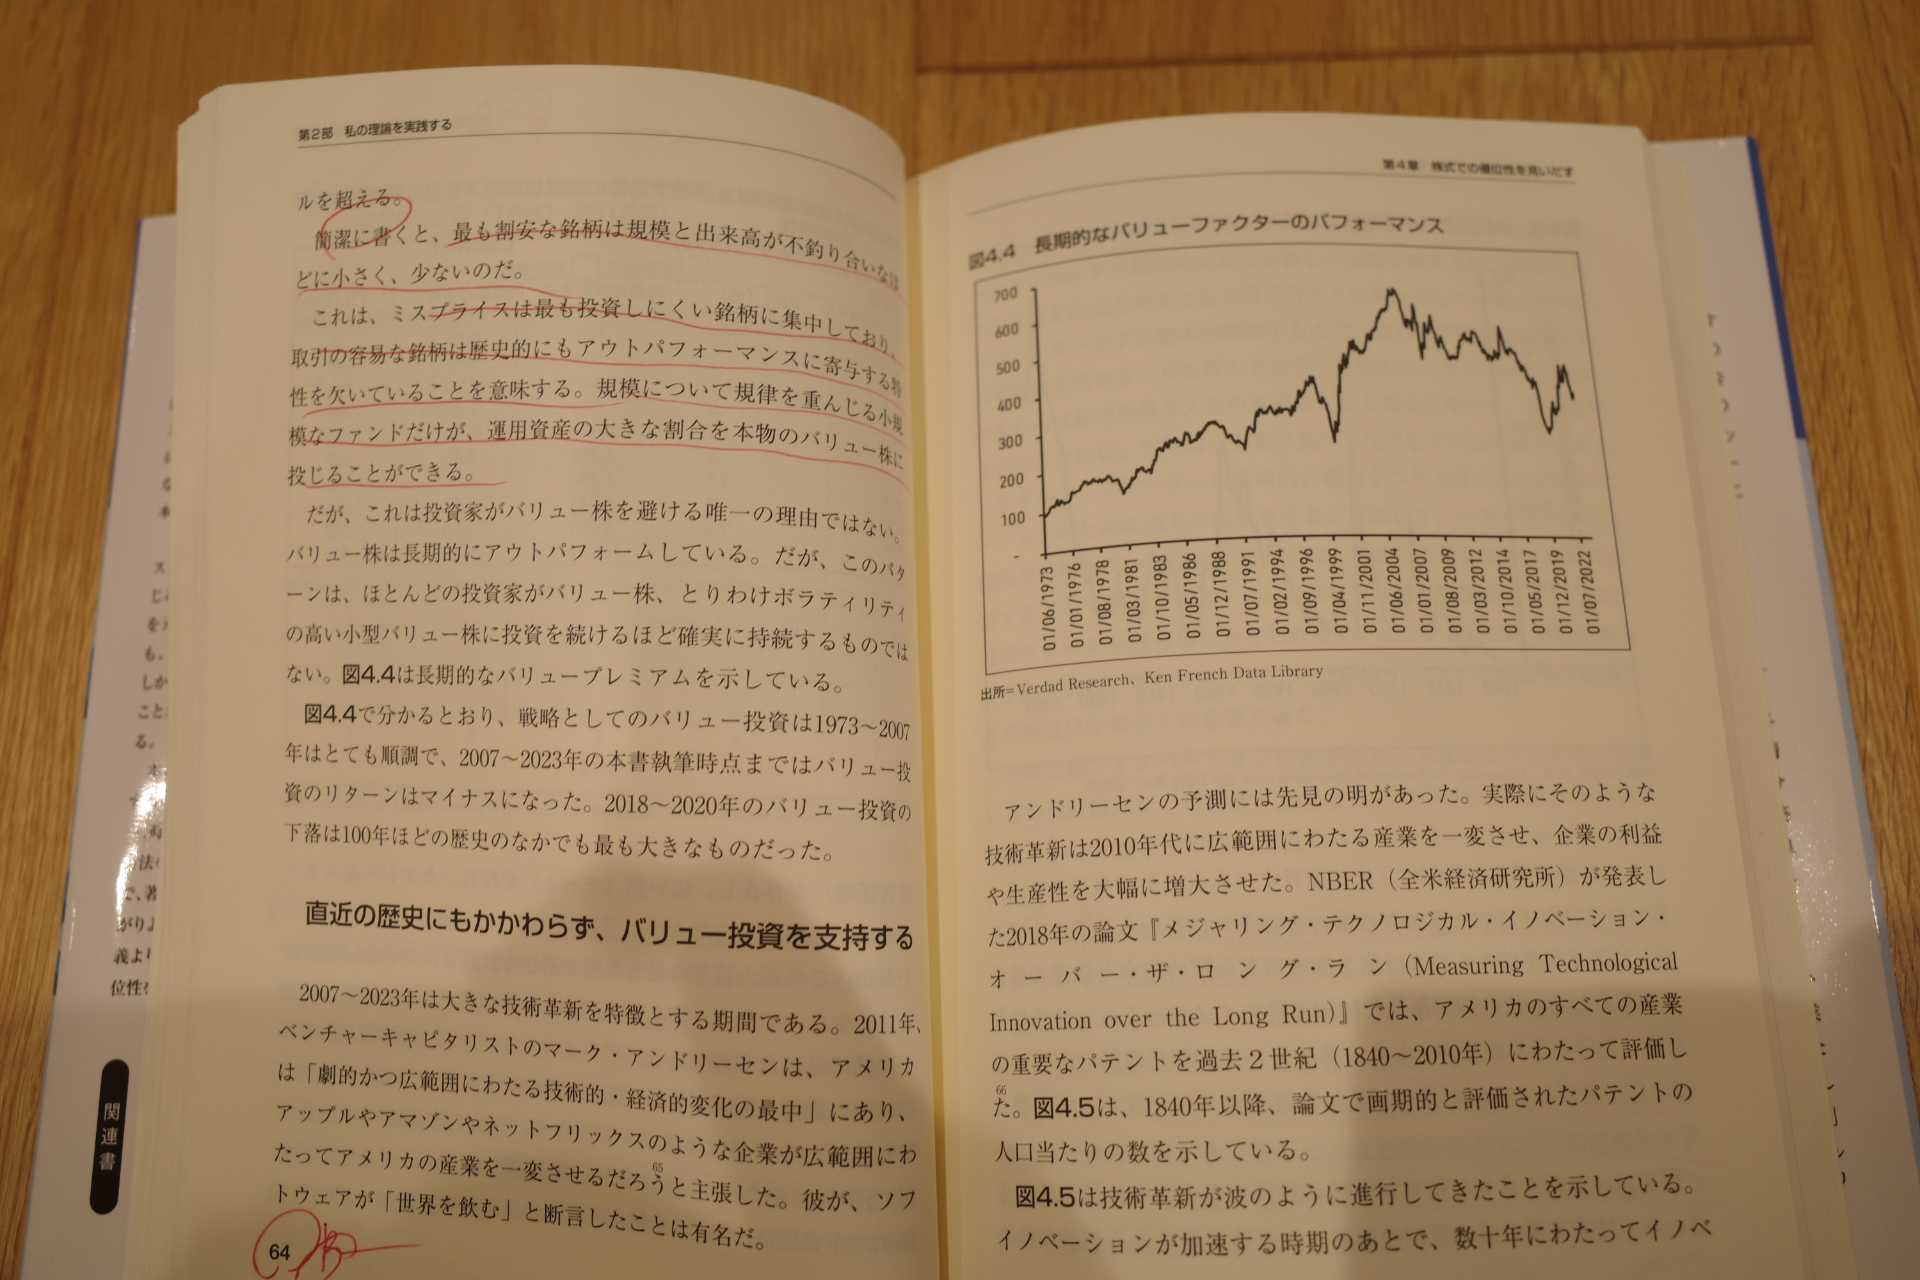 第2部　私の理論を実践する
ルを超える。
簡潔に書くと、最も割安な銘柄は規模と出来高が不釣り合いなほ
どに小さく、少ないのだ。
これは、ミスプライスは最も投資しにくい銘柄に集中しており、
取引の容易な銘柄は歴史的にもアウトパフォーマンスに寄与する特
性を欠いていることを意味する。規模について規律を重んじる小規
模なファンドだけが、運用資産の大きな割合を本物のバリュー株に
投じることができる。
だが、これは投資家がバリュー株を避ける唯一の理由ではない。
バリュー株は長期的にアウトパフォームしている。だが、このパタ
ーンは、ほとんどの投資家がバリュー株、とりわけボラティリティ
の高い小型バリュー株に投資を続けるほど確実に持続するものでは
ない。図4.4は長期的なバリュープレミアムを示している。
図4.4で分かるとおり、戦略としてのバリュー投資は1973～2007
年はとても順調で、2007～2023年の本書執筆時点まではバリュー投
資のリターンはマイナスになった。2018～2020年のバリュー投資の
下落は100年ほどの歴史のなかでも最も大きなものだった。
直近の歴史にもかかわらず、バリュー投資を支持する
2007～2023年は大きな技術革新を特徴とする期間である。2011年、
ベンチャーキャピタリストのマーク・アンドリーセンは、アメリカ
は「劇的かつ広範囲にわたる技術的・経済的変化の最中」にあり、
アップルやアマゾンやネットフリックスのような企業が広範囲にわ
たってアメリカの産業を一変させるだろう65と主張した。彼が、ソフ
トウェアが「世界を飲む」と断言したことは有名だ。
64
関連書
第4章　株式での優位性を見いだす
図4.4　長期的なバリューファクターのパフォーマンス
700
600
500
400
300
200
100
-
01/06/1973
01/01/1976
01/08/1978
01/03/1981
01/10/1983
01/05/1986
01/12/1988
01/07/1991
01/02/1994
01/09/1996
01/04/1999
01/11/2001
01/06/2004
01/01/2007
01/08/2009
01/03/2012
01/10/2014
01/05/2017
01/12/2019
01/07/2022
出所＝Verdad Research、Ken French Data Library
アンドリーセンの予測には先見の明があった。実際にそのような
技術革新は2010年代に広範囲にわたる産業を一変させ、企業の利益
や生産性を大幅に増大させた。NBER（全米経済研究所）が発表し
た2018年の論文『メジャリング・テクノロジカル・イノベーション・
オーバー・ザ・ロング・ラン（Measuring Technological
Innovation over the Long Run）』では、アメリカのすべての産業
の重要なパテントを過去2世紀（1840～2010年）にわたって評価し
た66。図4.5は、1840年以降、論文で画期的と評価されたパテントの
人口当たりの数を示している。
図4.5は技術革新が波のように進行してきたことを示している。
イノベーションが加速する時期のあとで、数十年にわたってイノベ